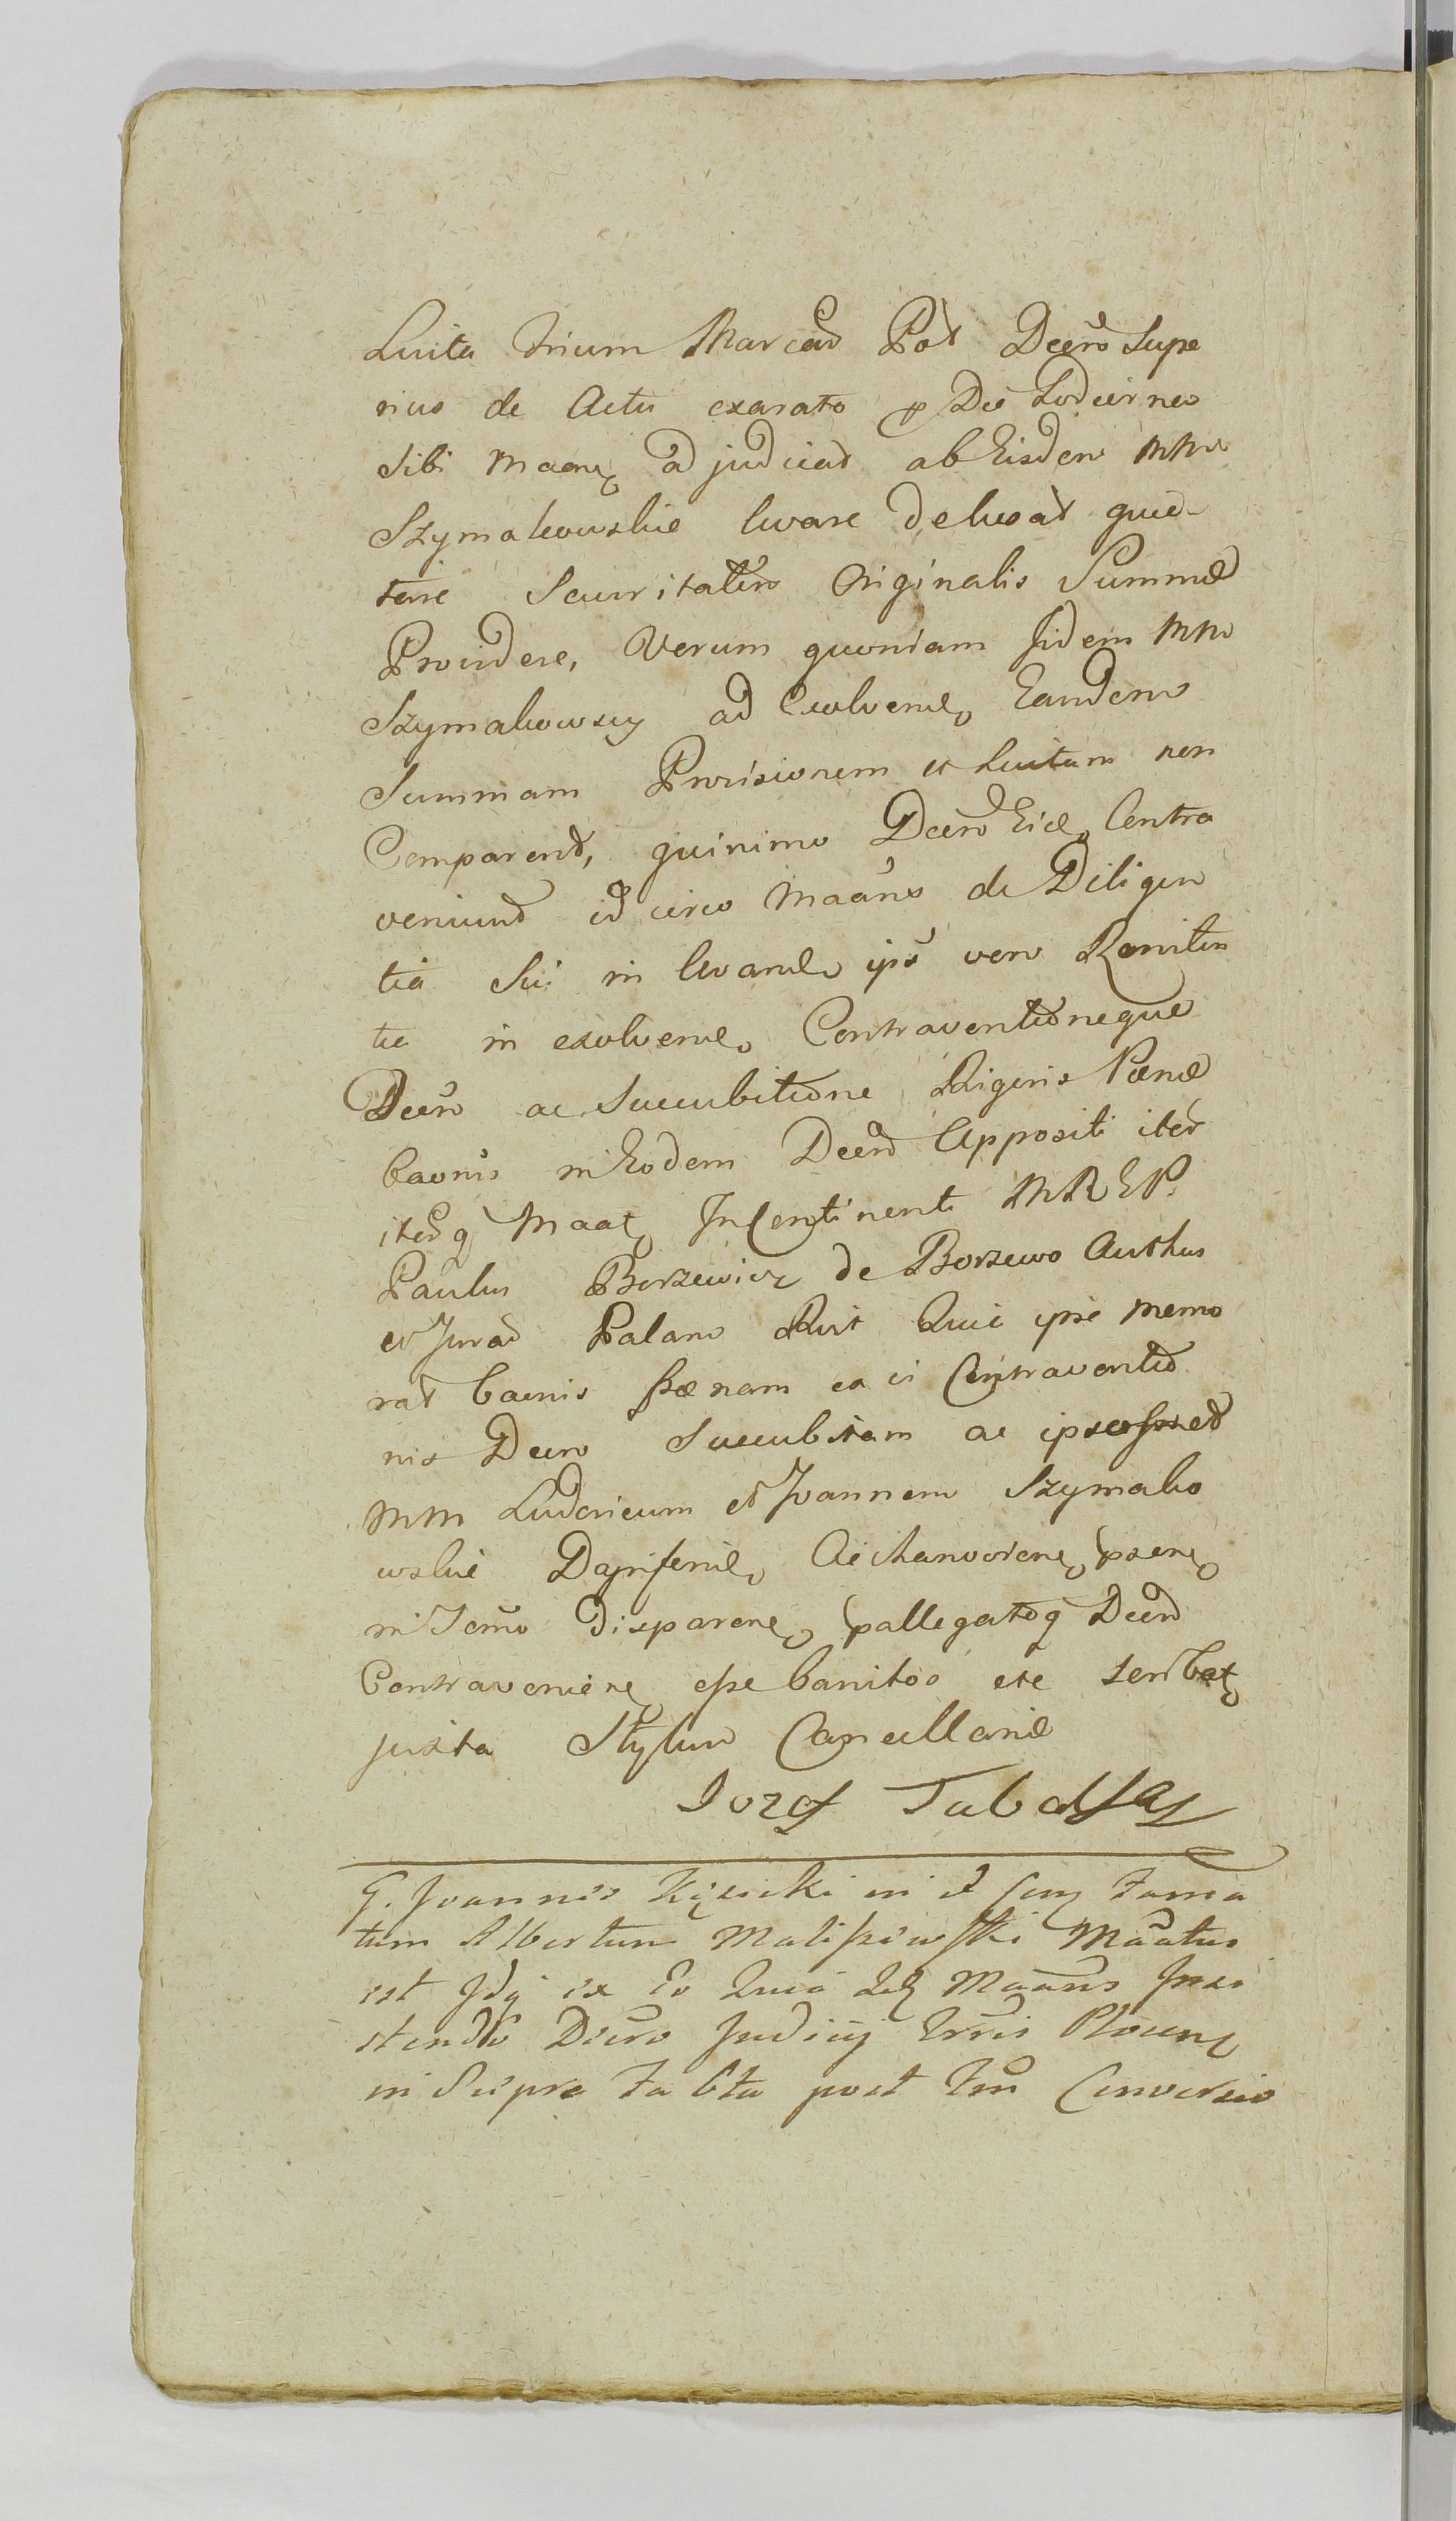 Luita trium Marcar Pot Decro Supe
rius de Actu exarato p Die hodierneo
Sibi Maane adjudicat ab Eisdem MM
Szymakowskie levare deheat quie
tare Securitatem Originalis Summæ
Providere, Verum quoniam Iidem MM
Szymakowscy ad Exolvend Eandem
Summam Provisionem et luitam non
Comparend, quinimo Decro Eid Contra
veniund id circo Maans de Diligen
tia Sui in levand ips vero Reniten
tia in exolvend Contraventioneque
Decro ac Succubitione Rigoris Pænæ
banis in Eodem Decro Appositi iter
iterq Maat Incontinenti MREP.
Paulus Borzewicz de Borzewo Actus
et Jurat Palam Quia ipse memo
rat banis pænam ex ci Contraventio
nis Decro Succubitam ac ipsos
MM Ludovicum et Joannem Szymako
wskie Dapiferid
in Termo disparen pallegatoq Decro
Contravenien esse banitos etc
juxta Stylum Cancellariæ
Jozef
G. Joannes Kęsicki in et Fama
tum Albertum Maliszewski Maatus
est Idq ex Eo Quia Maans Insi
stendo Decro Judicij Trris Plocen
in Supra post Conversio